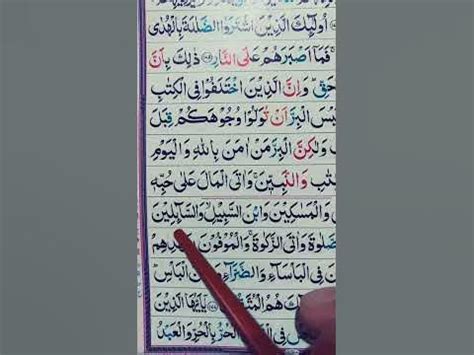 اُولٰٓئِكَ الَّذِيْنَ اشْتَرَوُا الضَّلٰلَةَ بِالْهُدٰى
فَمَآ اَصْبَرَهُمْ عَلَى النَّارِ ذٰلِكَ بِاَنَّ
وَاِنَّ الَّذِيْنَ اخْتَلَفُوْا فِى الْكِتٰبِ
الْبِرَّ اَنْ تُوَلُّوْا وُجُوْهَكُمْ قِبَلَ
وَلٰكِنَّ الْبِرَّ مَنْ اٰمَنَ بِاللّٰهِ وَالْيَوْمِ
وَالنَّبِيّٖنَ وَاٰتَى الْمَالَ عَلٰى حُبِّهٖ
وَالْمَسٰكِيْنَ وَابْنَ السَّبِيْلِ وَالسَّآئِلِيْنَ
وَاٰتَى الزَّكٰوةَ وَالْمُوْفُوْنَ
فِى الْبَاْسَآءِ وَالضَّرَّآءِ الْبَاْسِ
هُمُ يٰٓاَيُّهَا الَّذِيْنَ
اَلْحُرُّ بِالْحُرِّ وَالْعَبْدُ